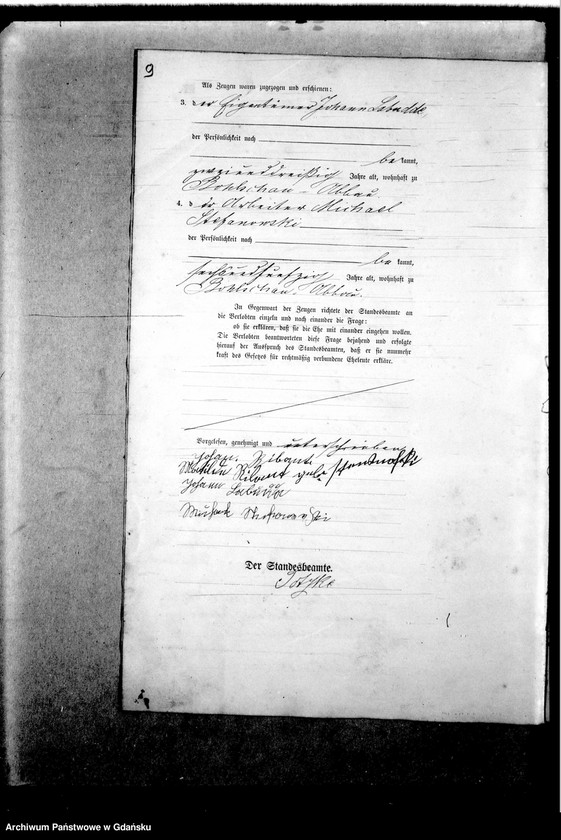 9
Als Zeugen waren zugezogen und erschienen:
3. der Eigentümer Johann Labudda
der Persönlichkeit nach
bekannt,
zweiunddreißig Jahre alt, wohnhaft zu
Bohlschau-Abbau
4. der Arbeiter Michael
Stefanowski
der Persönlichkeit nach
bekannt,
sechsundfünfzig Jahre alt, wohnhaft zu
Bohlschau-Abbau.
In Gegenwart der Zeugen richtete der Standesbeamte an
die Verlobten einzeln und nach einander die Frage:
ob sie erklären, daß sie die Ehe mit einander eingehen wollen.
Die Verlobten beantworteten diese Frage bejahend und erfolgte
hierauf der Ausspruch des Standesbeamten, daß er sie nunmehr
kraft des Gesetzes für rechtmäßig verbundene Eheleute erkläre.
Vorgelesen, genehmigt und unterschrieben
Johann
Johann Labuda
Der Standesbeamte.
Archiwum Państwowe w Gdańsku